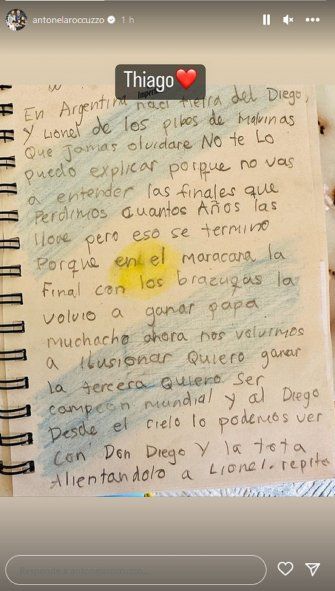 antonelaroccuzzo 1 h
Thiago❤️
En Argentina naci tierra del Diego,
Y Lionel de los pibes de Malvinas
Que Jamas olvidare No te Lo
puedo explicar porque no vas
a entender las finales que
Perdimos Cuantos Años las
llore pero eso se termino
Porque en el maracana la
final con los brazugas la
volvio a ganar papa
muchacho ahora nos volvimos
a ilusionar Quiero ganar
la tercera Quiero Ser
campeon mundial y al Diego
Desde el cielo lo podemos ver
con Don Diego Y la tota
Alientandolo a Lionel. repite
Responde a antonelaroccuzzo...